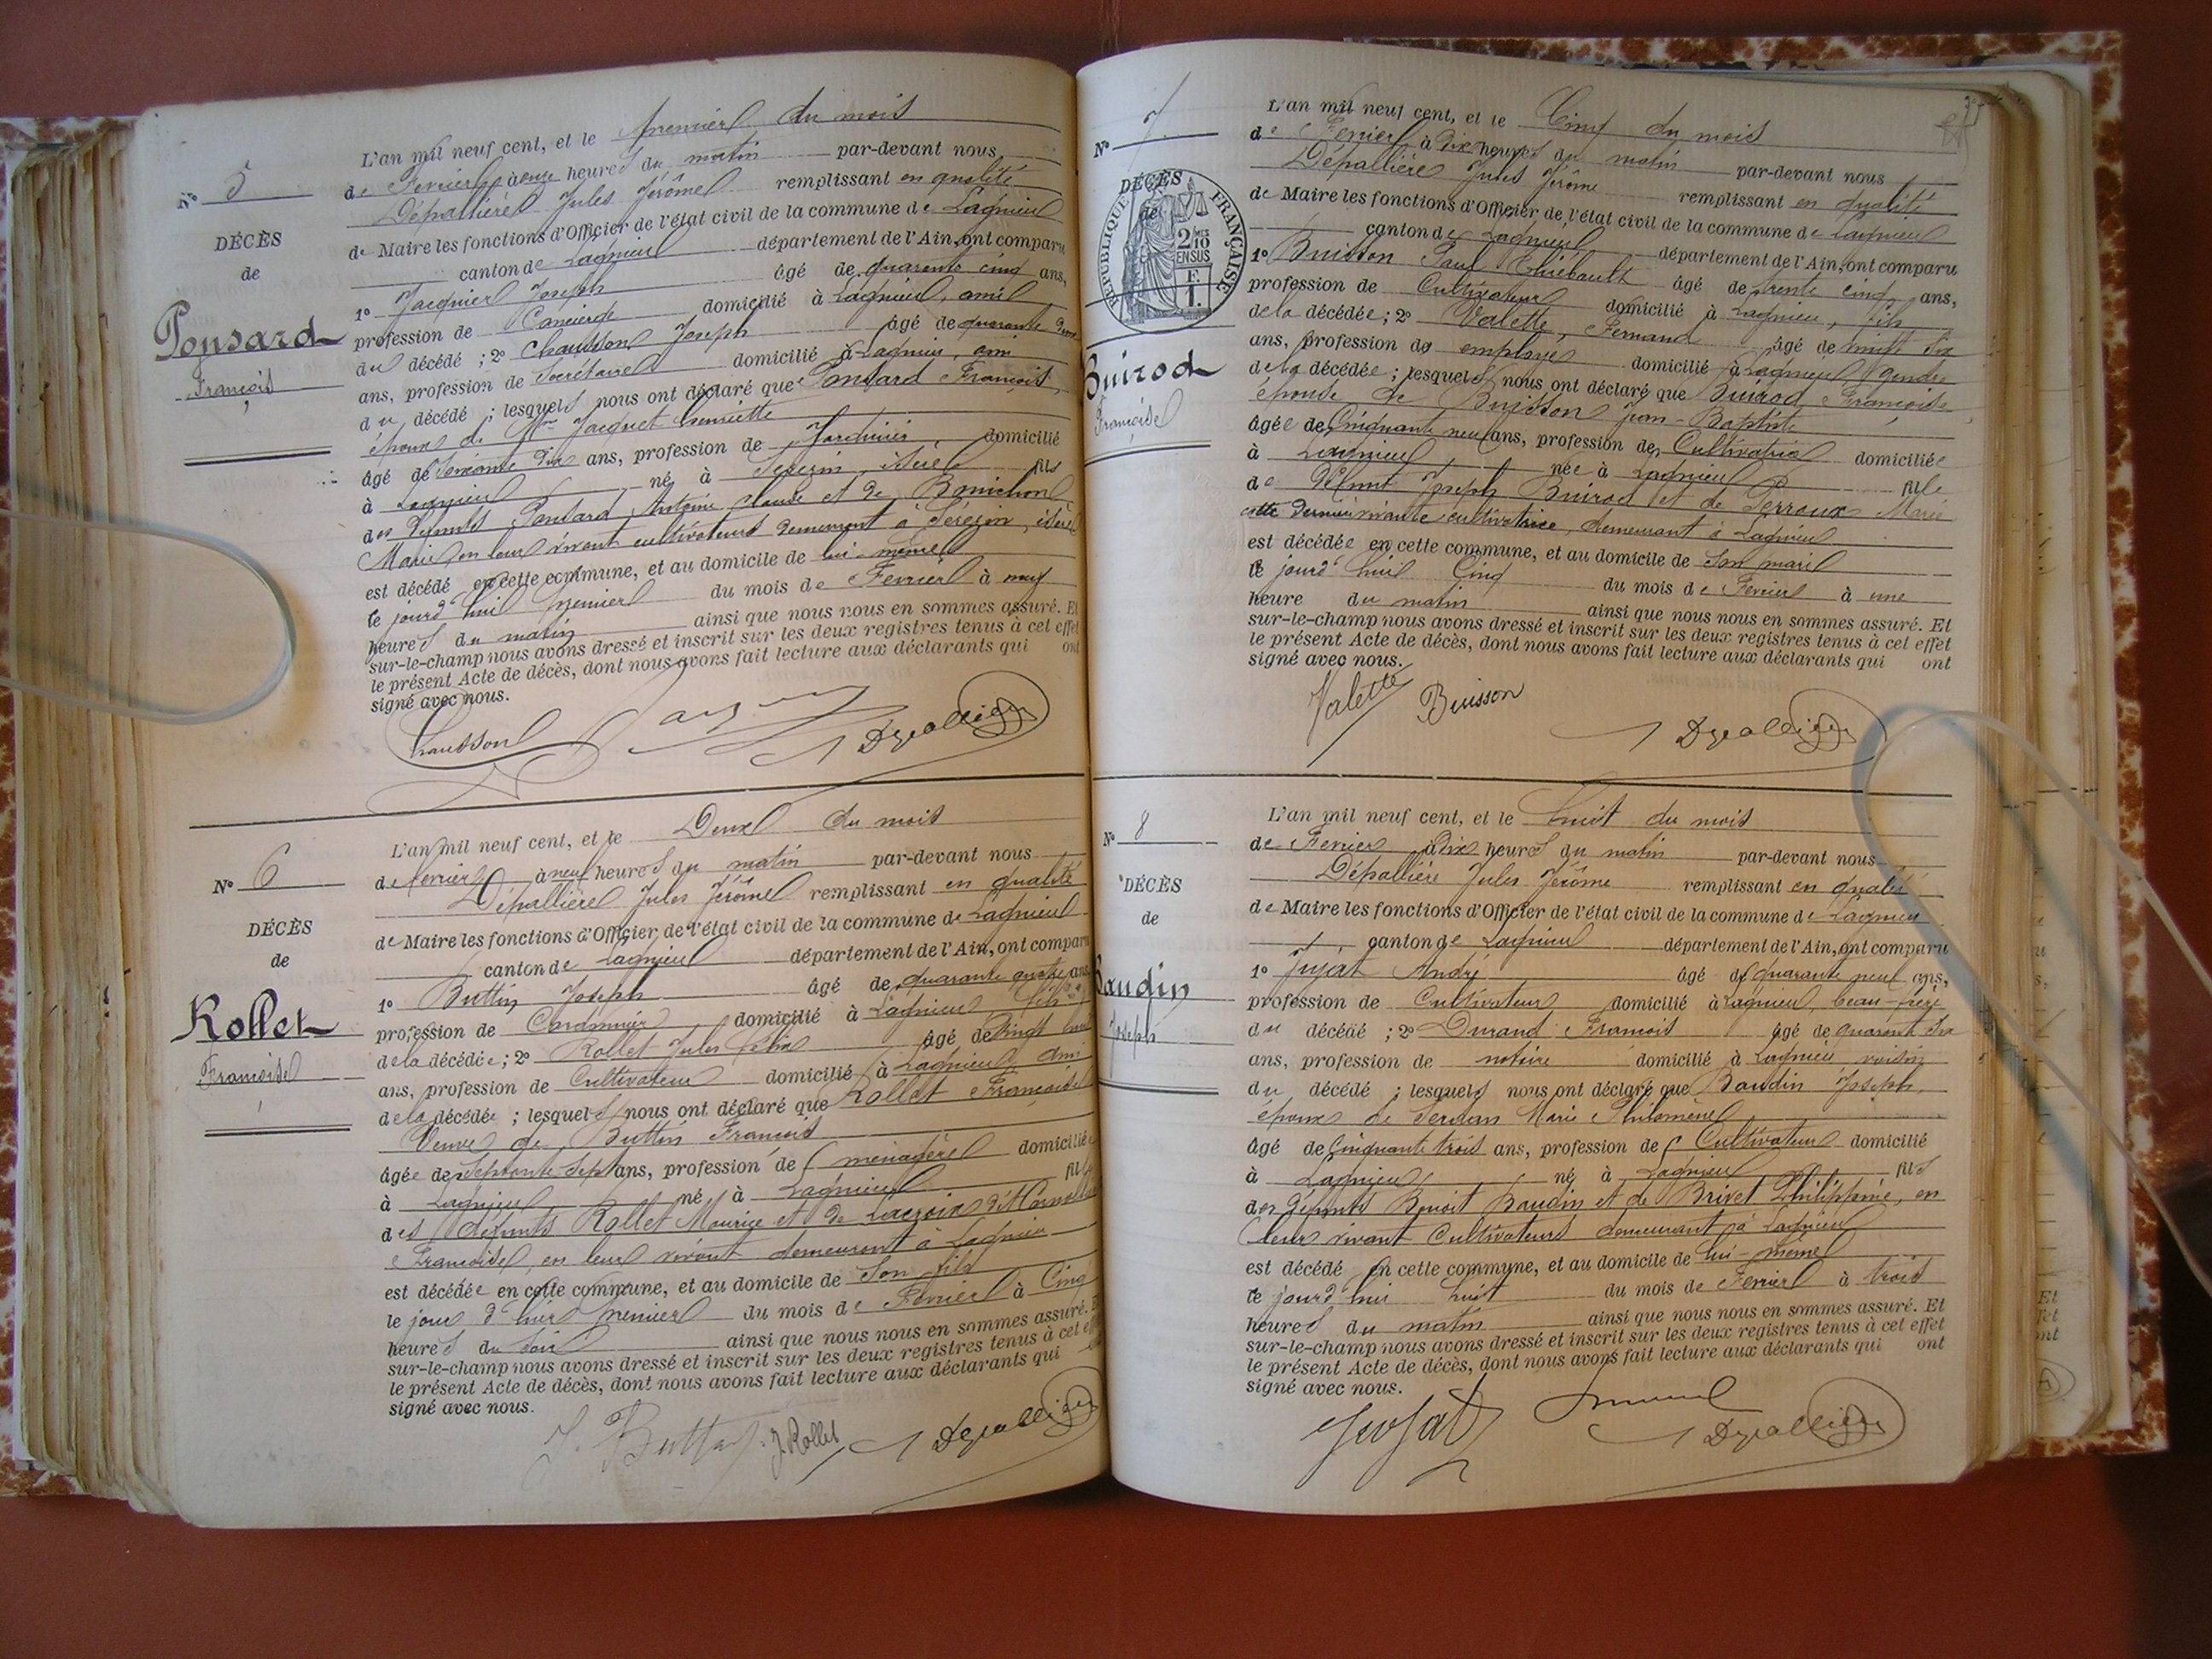 N° 5
DÉCÈS
de
Ponsard
François
L'an mil neuf cent, et le premier du mois
de Fevrier à onze heures du matin par-devant nous
Dépallière Jules Jérôme remplissant en qualité
de Maire les fonctions d'Officier de l'état civil de la commune de Lagnieu
canton de Lagnieu département de l'Ain, ont comparu
1° Jacquier Joseph âgé de quarante cinq ans,
profession de Concierge domicilié à Lagnieu, ami
du décédé ; 2° Chausson Joseph âgé de quarante deux
ans, profession de Secrétaire domicilié à Lagnieu, ami
du décédé ; lesquels nous ont déclaré que Ponsard François,
époux de Mme Jacquet Henriette
âgé de Soixante dix ans, profession de Jardinier, domicilié
à Lagnieu né à Serezin, isère fils
des défunts Ponsard Antoine Claude et de Bonichon
Marie en leur vivant cultivateurs demeurant à Sérézin, isère
est décédé en cette commune, et au domicile de lui-même
le jourd'hui premier du mois de Fevrier à neuf
heures du matin ainsi que nous nous en sommes assuré. Et
sur-le-champ nous avons dressé et inscrit sur les deux registres tenus à cet effet
le présent Acte de décès, dont nous avons fait lecture aux déclarants qui ont
signé avec nous.
Chausson Dépallière
N° 6
DÉCÈS
de
Rollet
Françoise
L'an mil neuf cent, et le Deux du mois
de Fevrier à neuf heures du matin par-devant nous
Dépallière Jules Jérôme remplissant en qualité
de Maire les fonctions d'Officier de l'état civil de la commune de Lagnieu
canton de Lagnieu département de l'Ain, ont comparu
1° Buttin Joseph âgé de quarante quatre ans,
profession de Cordonnier domicilié à Lagnieu, fils
de la décédée ; 2° Rollet Jules Félix âgé de Vingt huit
ans, profession de Cultivateur domicilié à Lagnieu ami
de la décédée ; lesquels nous ont déclaré que Rollet Françoise
Veuve de Buttin François
âgée de Septante Sept ans, profession de ménagère domiciliée
à Lagnieu né à Lagnieu fille
des défunts Rollet Maurice et de Lacroix dit
Françoise, en leur vivant demeurant à Lagnieu
est décédée en cette commune, et au domicile de Son fils
le jour d'hier premier du mois de Fevrier à Cinq
heures du Soir ainsi que nous nous en sommes assuré. Et
sur-le-champ nous avons dressé et inscrit sur les deux registres tenus à cet effet
le présent Acte de décès, dont nous avons fait lecture aux déclarants qui
signé avec nous.
J. Buttin J. Rollet Dépallière
N° 7
DÉCÈS
de
RÉPUBLIQUE FRANÇAISE
2 MES 10 EN SUS
F. 1.
Buirod
Françoise
L'an mil neuf cent, et le Cinq du mois
de Fevrier à Dix heures du matin par-devant nous
Dépallière Jules Jérôme remplissant en qualité
de Maire les fonctions d'Officier de l'état civil de la commune de Lagnieu
canton de Lagnieu département de l'Ain, ont comparu
1° Buisson Paul Thiébault âgé de trente cinq ans,
profession de Cultivateur domicilié à Lagnieu, fils
de la décédée ; 2° Valette, Fernand âgé de trente six
ans, profession de employé domicilié à Lagnieu, gendre
de la décédée ; lesquels nous ont déclaré que Buirod Françoise
épouse de Buisson Jean-Baptiste
âgée de Cinquante neuf ans, profession de Cultivatrice domiciliée
à Lagnieu née à Lagnieu fille
de défunt Joseph Buirod et de Perroux Marie
cette dernière vivante cultivatrice, demeurant à Lagnieu
est décédée en cette commune, et au domicile de Son mari
le jourd'hui Cinq du mois de Fevrier à une
heure du matin ainsi que nous nous en sommes assuré. Et
sur-le-champ nous avons dressé et inscrit sur les deux registres tenus à cet effet
le présent Acte de décès, dont nous avons fait lecture aux déclarants qui ont
signé avec nous.
Valette Buisson Dépallière
N° 8
DÉCÈS
de
Baudin
Joseph
L'an mil neuf cent, et le huit du mois
de Fevrier à Dix heures du matin par-devant nous
Dépallière Jules Jérôme remplissant en qualité
de Maire les fonctions d'Officier de l'état civil de la commune de Lagnieu
canton de Lagnieu département de l'Ain, ont comparu
1° Jujat André âgé de quarante neuf ans,
profession de Cultivateur domicilié à Lagnieu, beau-frère
du décédé ; 2° Durand François âgé de quarante six
ans, profession de notaire domicilié à Lagnieu voisin
du décédé ; lesquels nous ont déclaré que Baudin Joseph,
époux de Marie Philomène
âgé de Cinquante trois ans, profession de Cultivateur domicilié
à Lagnieu né à Lagnieu fils
des défunts Benoit Baudin et de Brivet Philippine, en
leur vivant Cultivateurs demeurant à Lagnieu
est décédé en cette commune, et au domicile de lui-même
le jourd'hui huit du mois de Fevrier à trois
heures du matin ainsi que nous nous en sommes assuré. Et
sur-le-champ nous avons dressé et inscrit sur les deux registres tenus à cet effet
le présent Acte de décès, dont nous avons fait lecture aux déclarants qui ont
signé avec nous.
Jujat Dépallière